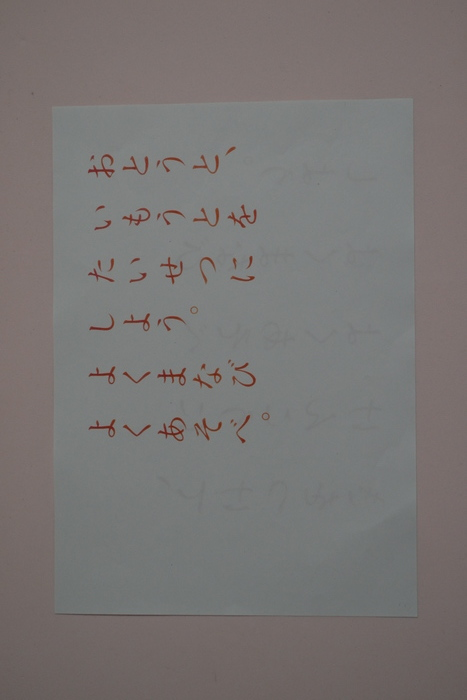 おとうと、
いもうとを
たいせつに
しよう。
よくまなび
よくあそべ。